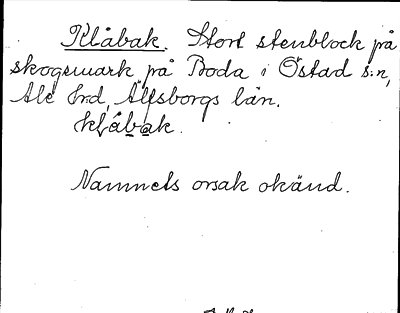 Klåbak. Stort stenblock på
skogsmark på Boda i Östad s:n,
Ale hrd, Älfsborgs län.
klåbak.
Namnets orsak okänd.